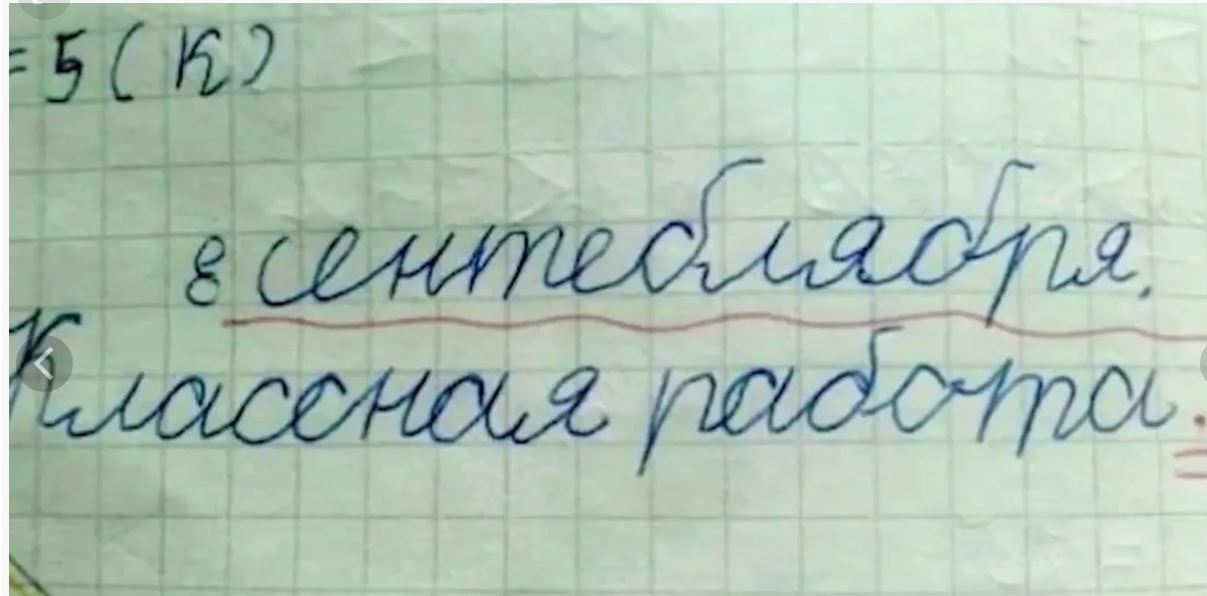 =5(К)
8 сентеблября.
Классная работа.